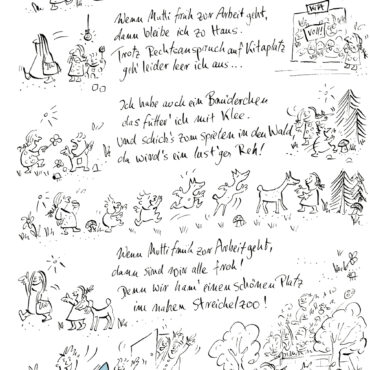 Wenn Mutti früh zur Arbeit geht,
dann bleibe ich zu Haus.
Trotz Rechtsanspruch auf Kitaplatz
geh' leider leer ich aus...
KITA
Voll!
Ich habe auch ein Brüderchen
das fütter' ich mit Klee.
Und schick's zum spielen in den Wald,
da wird's ein lust'ges Reh!
Wenn Mutti früh zur Arbeit geht,
dann sind wir alle froh!
Denn wir ham' einen schönen Platz
im nahen Streichelzoo!